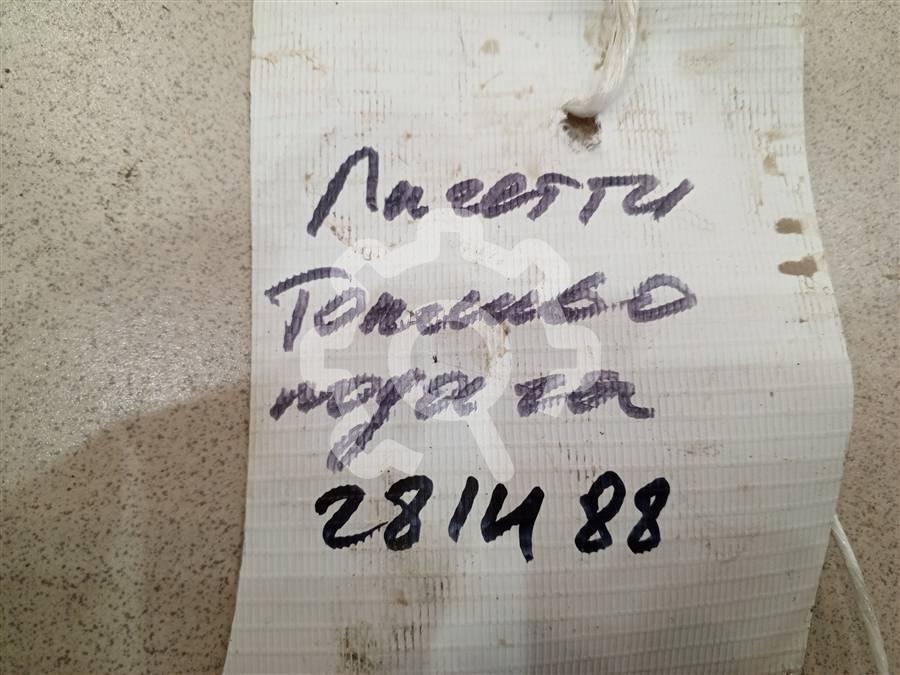 Лачетти
Топливо
подача
281488